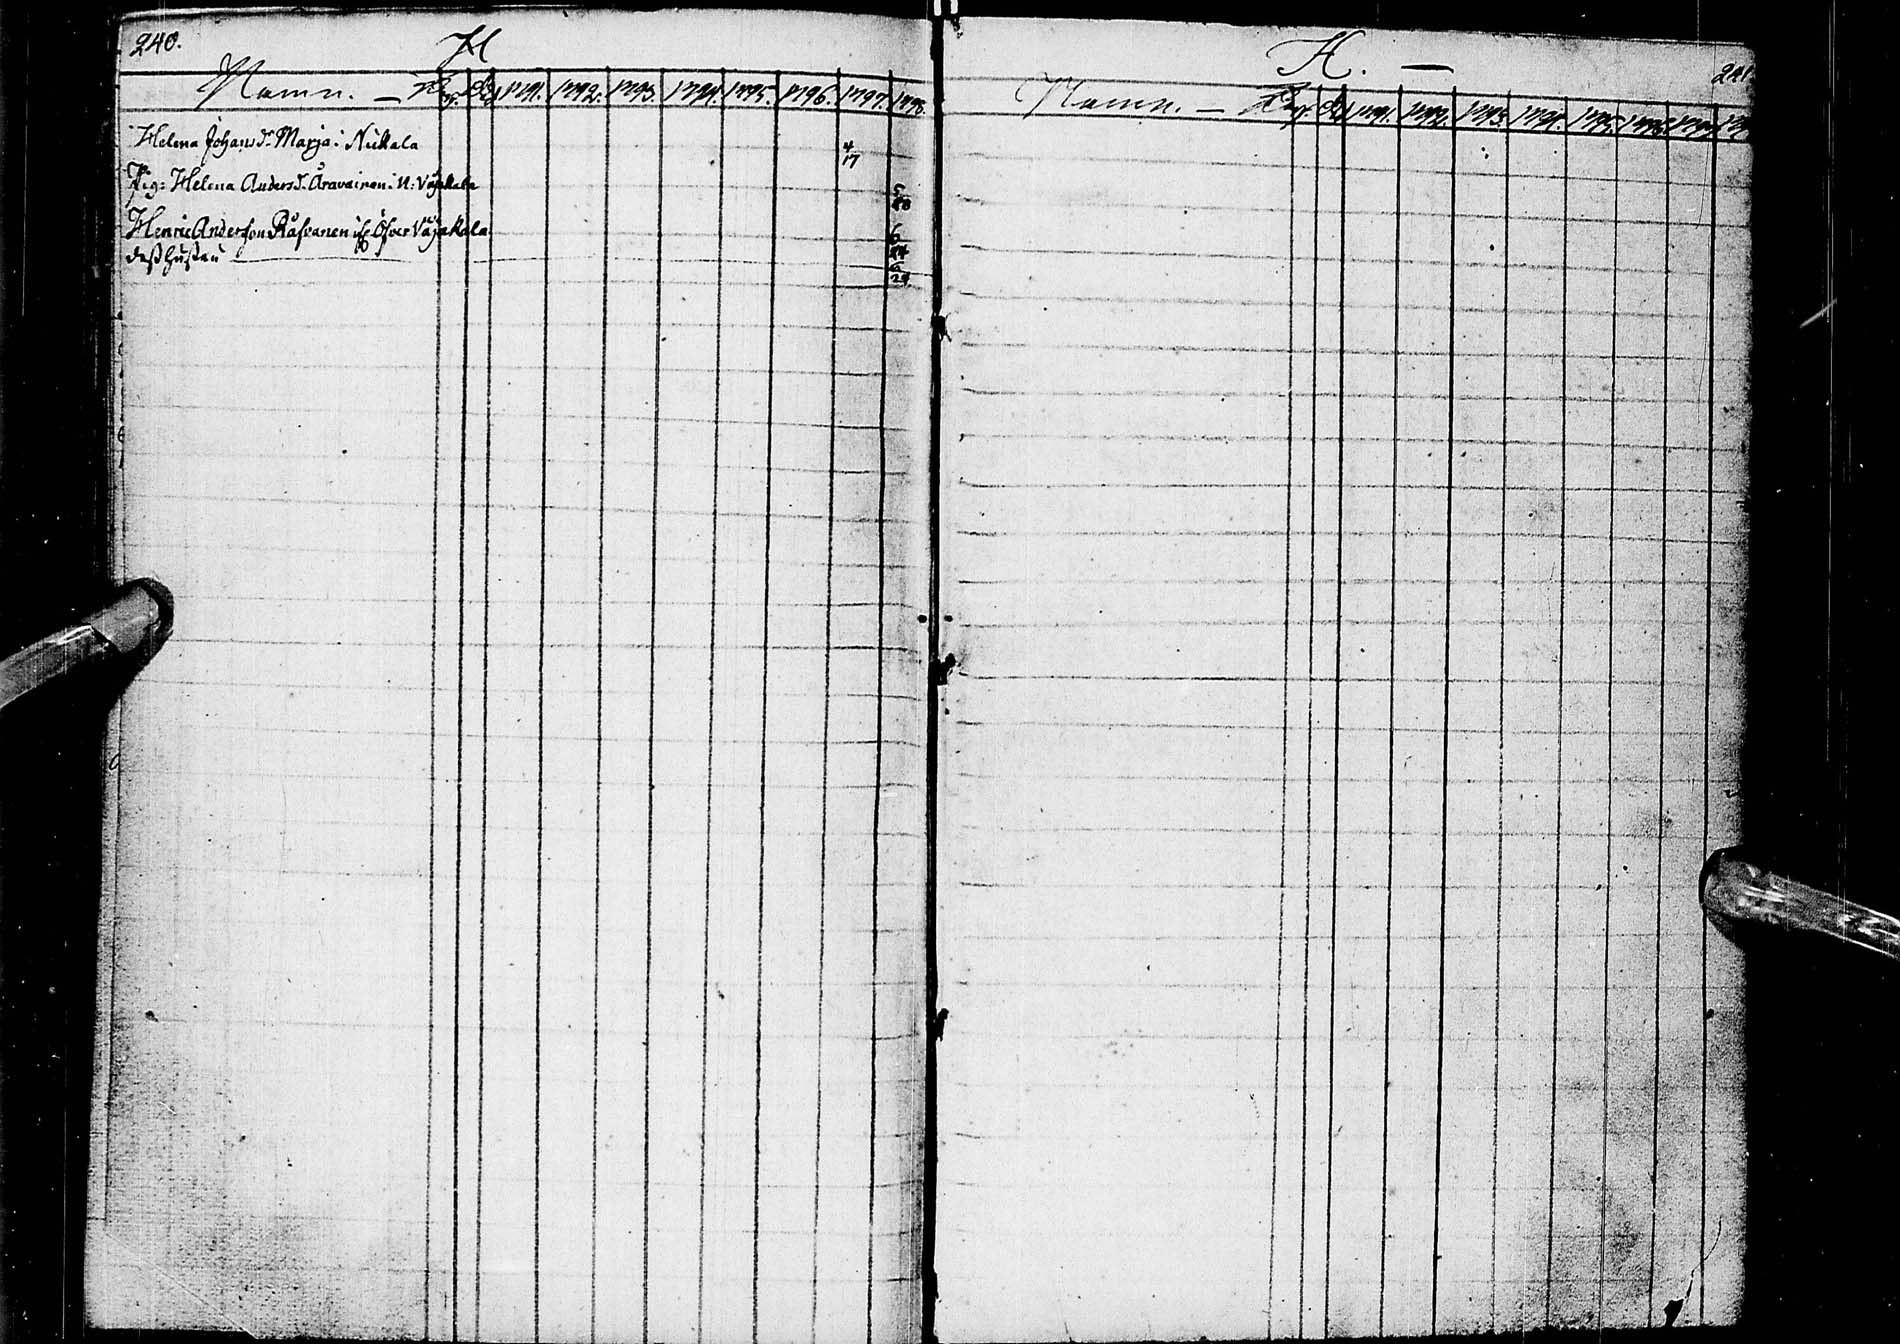 240.
H
Namn. — 1791. 1792. 1793. 1794. 1795. 1796. 1797. 1798.
Helena Johansd. Marja: Nukala 4/17
Pig: Helena Andersd. Äravainen. N: Väjakala 5/80
Henric Andersson Räsanen ifr Öfver Väjakala 6/24
dess hustru 6/24
H. —
241.
Namn. — 1791. 1792. 1793. 1794. 1795. 1796. 1797.